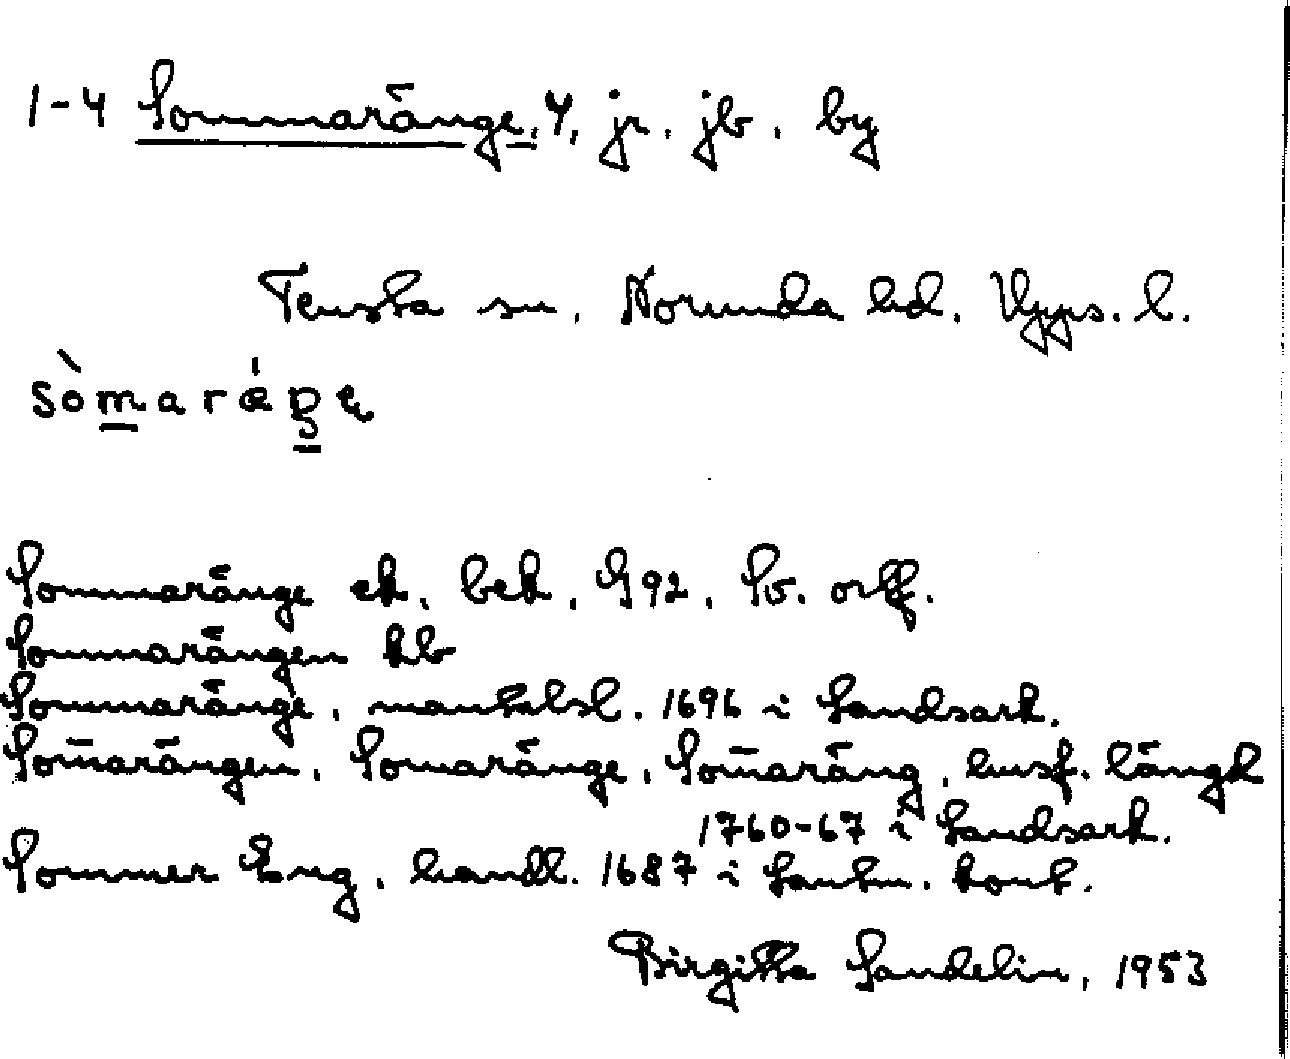 1-4 Sommaränge, 4, jr. jb. by
Tensta sn. Norunda hd. Upps. l.
Sommaränge ek. bek. G92. Sv. orff.
Sommarängen kb
Sommaränge, mantalsl. 1696 i Landsark.
Som̄arängen, Somaränge, Som̄aräng, husf. längd
1760-67 i Landsark.
Sommer Eng, handl. 1687 i Lantm. kont.
Birgitta Sandelin, 1953